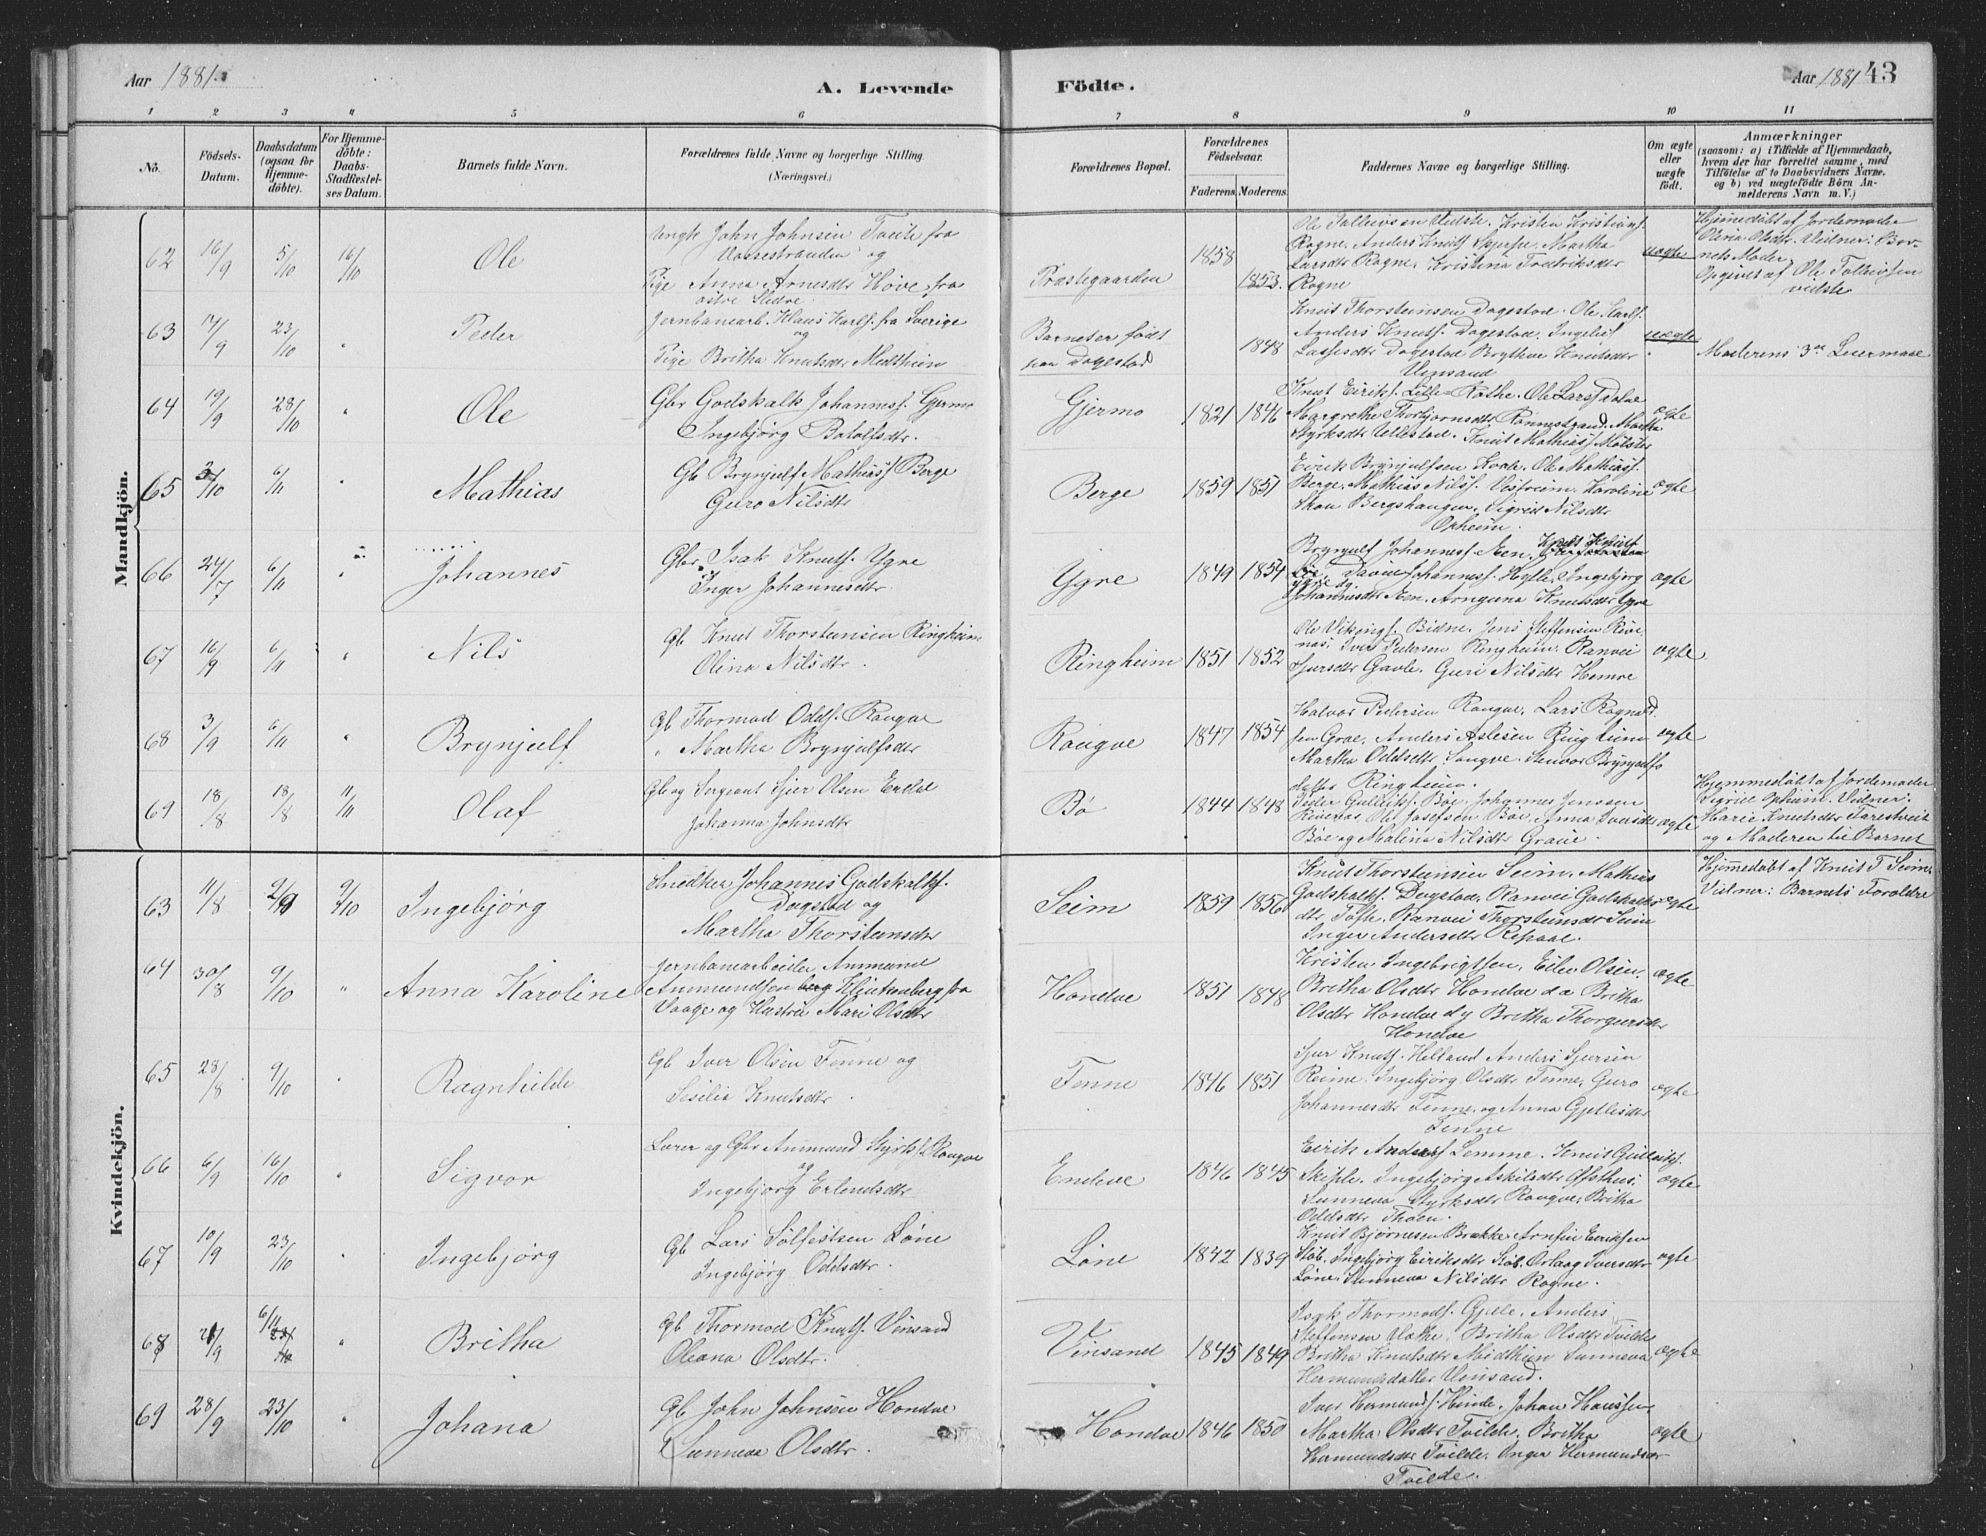 Aar 1881.
A. Levende
Födte.
Aar 1881
43
1 2 3 4 5 6 7 8 9 10 11
No.
Födsels-
Datum.
Daabsdatum
(ogsaa for
Hjemme-
döbte).
For Hjemme-
döbte:
Daabs-
Stadfæstel-
ses Datum.
Barnets fulde Navn.
Forældrenes fulde Navne og borgerlige Stilling.
(Næringsvei.)
Forældrenes Bopæl.
Forældrenes
Födselsaar.
Faderens. Moderens.
Faddernes Navne og borgerlige Stilling.
Om ægte
eller
uægte
födt.
Anmærkninger
(saasom: a) i Tilfælde af Hjemmedaab,
hvem der har forrettet samme, med
Tilföielse af to Daabsvidners Navne,
og b) ved uægtefödte Börn An-
melderens Navn m. V.)
Mandkjön.
62 16/9 5/10 16/10 Ole
Ungk John Johnsen Tveite fra
Vossestranden og
Pige Anna Arnesdtr Hove fra
østre Slidre.
Præstegaarden 1858 1853.
Ole Tollevsen Vidste. Kristen Kristians.
Rogne. Anders Knuts. Martha
Larsdtr Rogne. Kristina Fredriksdtr
Rogne
uægte
Hjemmedøbt af Jordemoder
Olina Olsdtr. Vidner: Bar-
nets Moder
Opgivet af Ole Tollefsen
Vidste
63 17/9 23/10 " Peder
Jernbanearb. Klaus Karls. fra Sverige
og
Pige Britha Knutsdtr Midthun
Barnet er født
paa Dagestad
1848
Knut Thorsteinsen Dagestad. Ole Karls.
Anders Knuts. Dagestad. Ingeleif
Lassesdtr Dagestad Brytheve Knutsdtr
Vinsand
uægte
Moderens 3die Leiermaal
64 19/9 28/10 " Ole
Gbr Godskalk Johanness. Gjermo
Ingebjørg Botolfsdtr.
Gjermo 1821 1846
Knut Eiriks. Lille-Rothe. Ole Larss. Dolve
Margrethe Thorbjørnsdtr Rønnestrand. Martha
Styrksdtr Ullestad. Knut Mathiass Mølster
ægte
65 3/10 6/11 " Mathias
Gb Brynjulf Mathiass. Berge
Guro Nilsdtr
Berge 1859 1851
Eirik Brynjulfsen Kvale. Ole Mathiass.
Berge. Mathias Nilss. Vestreim. Karoline
Skau Bergshaugen. Sigrid Nilsdtr
Opheim.
ægte
66 24/7 6/11 " Johannes
Gbr. Isak Knuts. Ygre
Inger Johannesdtr.
Ygre 1849 1854
Brynjulf Johanness. Een. Knut Knuts.
David Johanness. Hylle. Ingebjorg
Ygre og
Johannesdtr Een. Arnguna Knutsdtr Ygre
ægte
67 16/9 6/11 " Nils
Gb. Knut Thorsteinsen Ringheim
Olina Nilsdtr.
Ringheim 1851 1852
Ole Vikings. Bidne. Jens Steffensen Rive-
næs. Iver Pedersen Ringheim. Ranvei
Sjursdtr Gavle. Guri Nilsdtr Hemre
ægte
68 3/9 6/11 " Brynjulf
Gb Thormod Odds. Rongve
" Martha Brynjulfsdtr
Rongve 1847 1854
Halvor Pedersen Rongve. Lars Rognald-
sen Groe. Anders Aslesen Ringheim
Martha Oddsdtr Rongve. Steinvor Brynjulfs
datter Ringheim.
ægte
69 18/8 18/8 11/11 Olaf
Gb og Sergeant Sjur Olsen Endve
Johanna Johnsdtr
Bø 1844 1848
Peder Gulleiks. Bøe. Johannes Jenssen
Rivenæs Ole Josefsen Bøe. Anna Iversdtr
Bøe og Malina Nilsdtr Graue.
ægte
Hjemmedøbt af Jordemoder
Sigrid Opheim. Vidner:
Marie Knutsdtr Farestveit
og Moderen til Barnet
Kvindekjön.
63 11/8 2/9 9/10 Ingebjørg
Snedker Johannes Godskalks.
Dagstad og
Martha Thorsteinsdtr
Seim 1859 1856
Knut Thorsteinsen Seim. Mathias
Godskalks. Dagstad. Ranvei Godskalks
dtr. Tøfte. Ranvei Thorsteinsdtr Seim
Inger Andersdtr Repaal.
ægte
Hjemmedøbt af Knut T Seim.
Vidner: Barnets Forældre
64 30/8 9/10 " Anna Karoline
Jernbanearbeider Ammund
Ammundsen Klentenberg fra
Vaage og Hustru Mari Olsdtr
Hondve 1851 1848
Kristen Ingebrigtsen. Eilev Olsen.
Britha Olsdtr Hondve d æ Britha
Olsdtr Hondve d y Britha Thorgersdtr
Hondve
ægte
65 28/8 9/10 " Ragnhilde
Gb Iver Olsen Tenne og
Sesilia Knutsdtr.
Tenne 1846 1851
Sjur Knuts. Helland Anders Sjursen
Reime. Ingebjørg Olsdtr Tenne. Guro
Johannesdtr Tenne og Anna Gjetlesdtr
Tenne
ægte
66 6/9 16/10 " Sigvor
Lærer og Gbr Ammund Styrks. Rongve
og
Ingebjørg Erlendsdtr
Endve 1846 1845
Eirik Anders. Lemme. Knut Gulleiks.
Skiple. Ingebjørg Askildsdtr Ofsthus.
Sunneva Styrksdtr Rongve. Britha
Oddsdtr Thoen.
ægte
67 10/9 23/10 " Ingebjørg
Gb Lars Sølfestsen Løne
Ingebjørg Oddsdtr.
Løne 1842 1839
Knut Bjørnesen Brekke. Arnfin Eiriksen
Støb. Ingebjørg Eiriksdtr Støb. Orlaug Iversdtr
Løne. Sunneva Nilsdtr Rogne.
ægte
68 21/9 6/11 " Britha
Gb Thormod Knuts. Vinsand
Oleana Olsdtr.
Vinsand 1845 1849
Isak Thormods. Gjele. Anders
Steffensen Rokne. Britha Olsdtr Tvilde
Britha Knutsdtr Midthun Sunneva
Hermundsdatter Vinsand.
ægte
69 28/9 23/10 " Johana
Gb. John Johnsen Hondve
Sunneva Olsdtr.
Hondve 1846 1850
Iver Hermunds. Hinde. Johan Hanssen.
Martha Olsdtr Tvilde. Britha
Hermundsdtr Tvilde. Inger Hermundsdtr
Tvilde.
ægte